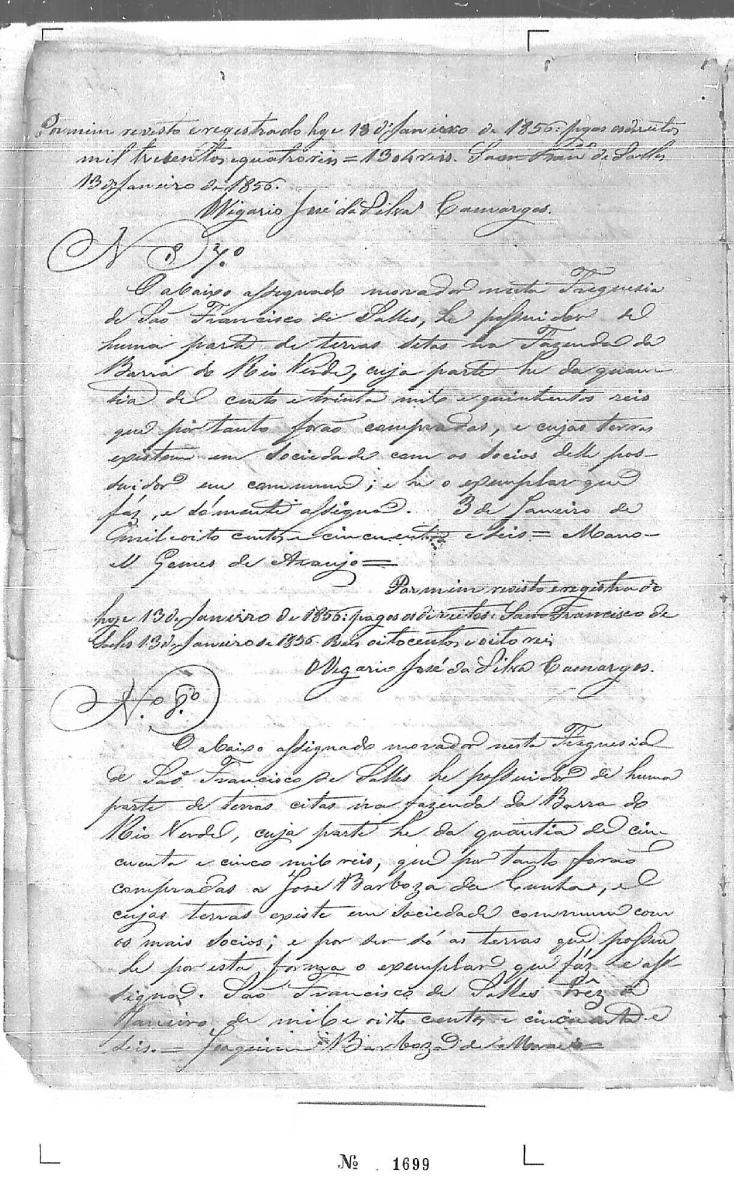 Por mim revisto e registrado hoje 13 de Janeiro de 1856: pagos os direitos
mil tresentos e quatro reis = 1304 reis. Sam Franco de Salles
13 de Janeiro de 1856.
O Vigario José da Silva Camargos.
N.º 7.º
O abaixo assignado morador nesta Freguesia
de São Francisco de Salles, he possuidor de
huma parte de terras sitas na Fazenda da
Barra do Rio Verde, cuja parte he da quan-
tia de cento e trinta mil e quinhentos reis
que por tanto forão compradas, e cujas terras
existem em sociedade com os socios delle pos-
suidor em commum; e he o exemplar que
faz, e sómente assigna. 3 de Janeiro de
mil e oito centos e cincuenta e seis = Mano-
el Gomes de Araujo =
Por mim revisto e registrado
hoje 13 de Janeiro de 1856: pagos os direitos: Sam Francisco de
Salles 13 de Janeiro de 1856. Reis oitocentos e oito reis
O Vigario José da Silva Camargos.
N.º 8.º
O abaixo assignado morador nesta Freguesia
de São Francisco de Salles he possuidor de huma
parte de terras citas na fazenda da Barra do
Rio Verde, cuja parte he da quantia de cin-
cuenta e cinco mil reis, que por tanto forão
compradas a José Barboza da Cunha, e
cujas terras existe em sociedade commum com
os mais socios; e por ser só as terras que possue
he por esta forma o exemplar que faz e as-
signa. São Francisco de Salles trêz de
Janeiro de mil e oito centos e cincuenta e
seis. = Joaquim Barboza de
Nº 1699